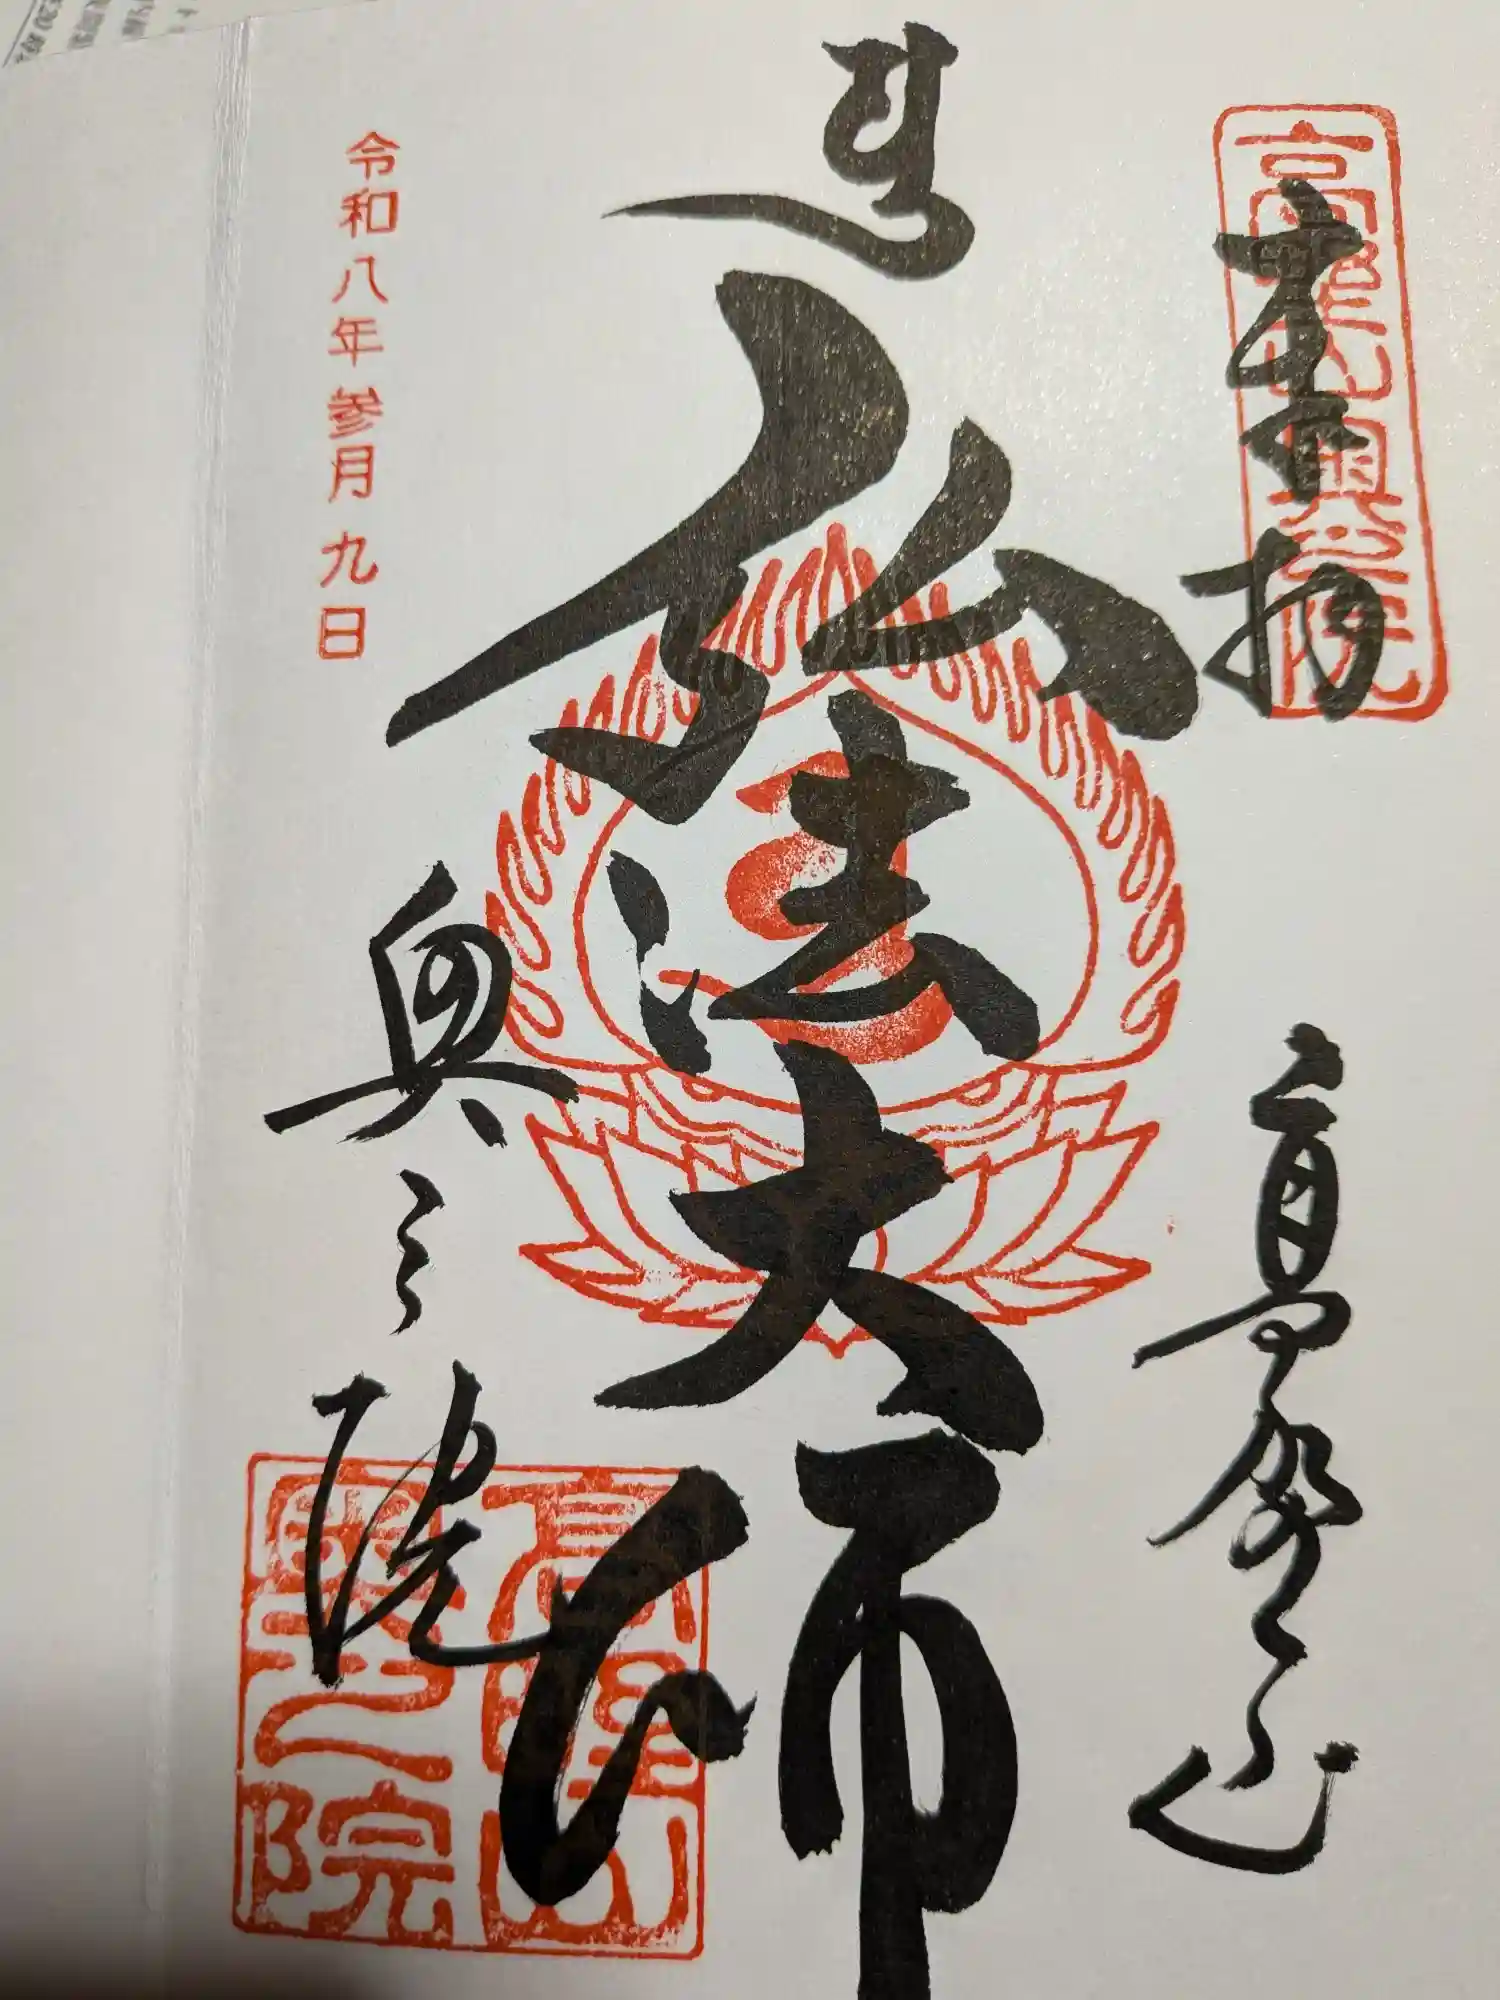 奉拝
高野山
高野山奥之院
弘法大師
奥之院
高野山奥之院
令和八年参月九日